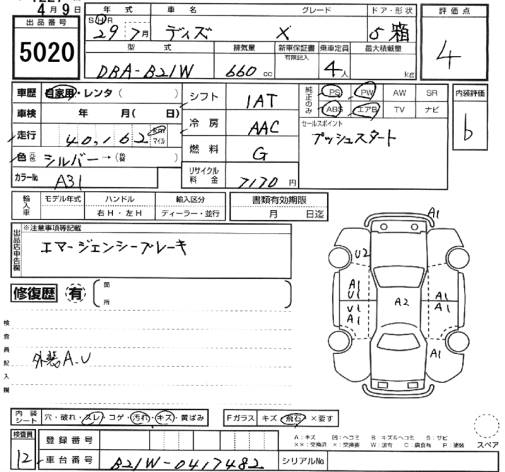 4月9日
出品番号
5020
年式 車名 グレード ドア・形状
S H R 29年7月 デイズ X 5 箱
型式 排気量 新車保証書 有限記入 乗車定員 最大積載量
DBA-B21W 660cc 4人 kg
評価点
4
車歴 自家用・レンタ( )
車検 年 月( 日)
走行 40,162 km マイル
色(元色) シルバー→(替)
カラーNo A31
シフト IAT
冷房 AAC
燃料 G
リサイクル料金 7170円
純正のみ PS PW AW SR
ABS エアB TV ナビ
セールスポイント
プッシュスタート
内装評価
b
輸入車 モデル年式 ハンドル 輸入区分
右H・左H ディーラー・並行
書類有効期限
月 日迄
出品店申告欄
※注意事項等記載
エマージェンシーブレーキ
修復歴 有 箇所
検査員記入欄
外装A.U
A1
U2
A1
U1
A1
A2
A1
U1
A1
U1
A1
A1
内装シート 穴・破れ・スレ・コゲ・汚れ・キズ・黄ばみ
Fガラス キズ・飛石・×要す
検査員
12
登録番号
車台番号 B21W-0417482
シリアルNo
A:キズ U:ヘコミ B:キズ&ヘコミ S:サビ
××:交換済 ×:交換要 W:波有 C:腐食有 P:塗装
スペア